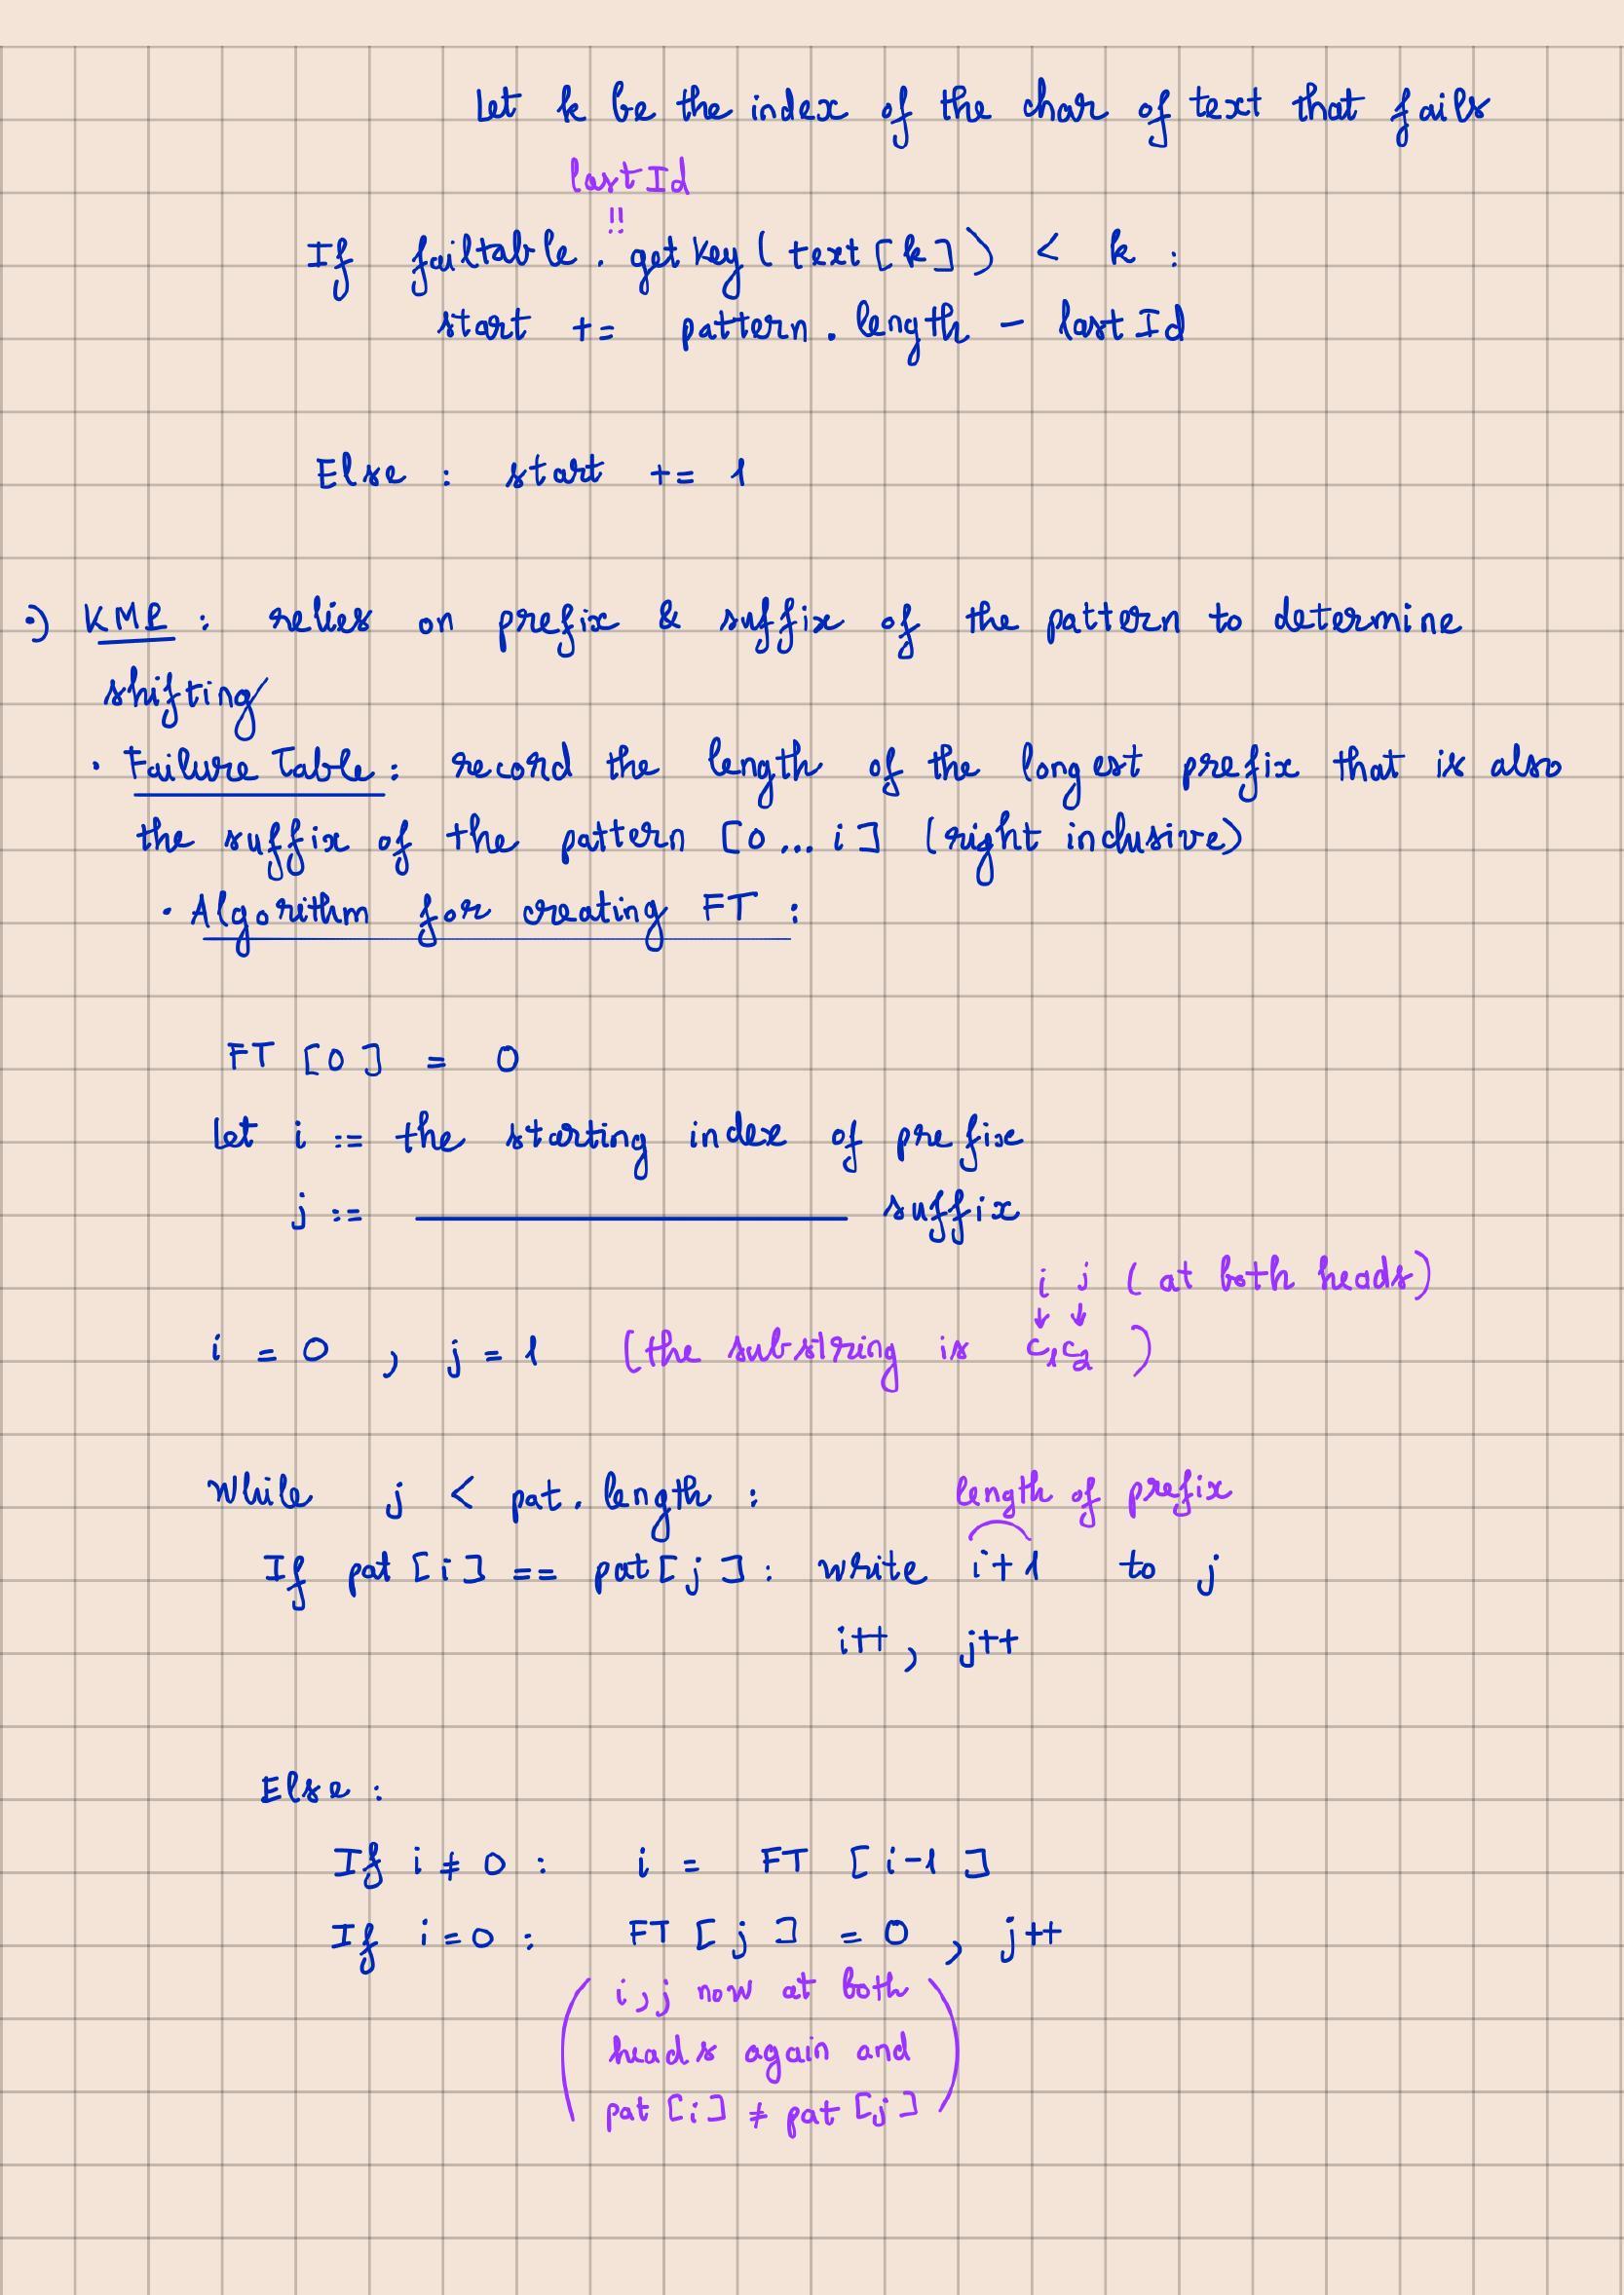 Let k be the index of the char of text that fails
lastId
!!
If failtable.getKey(text[k]) < k :
start += pattern.length - lastId
Else : start += 1
•) KMP : relies on prefix & suffix of the pattern to determine
shifting
• Failure Table : record the length of the longest prefix that is also
the suffix of the pattern [0...i] (right inclusive)
• Algorithm for creating FT :
FT [0] = 0
Let i := the starting index of prefix
j := ―――――― suffix
i j (at both heads)
↓ ↓
i = 0 , j = 1 (the substring is c₁c₂ )
While j < pat.length :
length of prefix
If pat[i] == pat[j] : write i+1 to j
i++, j++
Else :
If i ≠ 0 : i = FT [i-1]
If i = 0 : FT [j] = 0 , j++
(i,j now at both
heads again and
pat[i] ≠ pat[j])